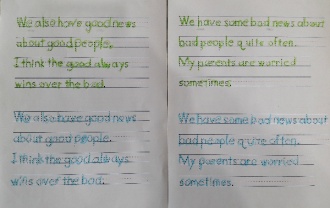 We also have good news
about good people.
I think the good always
wins over the bad.
We also have good news
about good people.
I think the good always
wins over the bad.
We have some bad news about
bad people quite often.
My parents are worried
sometimes.
We have some bad news about
bad people quite often.
My parents are worried
sometimes.